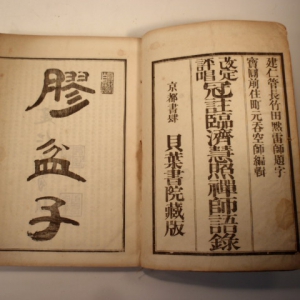 建仁管長竹田黙雷師題字
寶福前住町元呑空師編輯
改定
評唱
冠註臨濟慧照禪師語錄
京都書肆 貝葉書院藏版
膠盆子